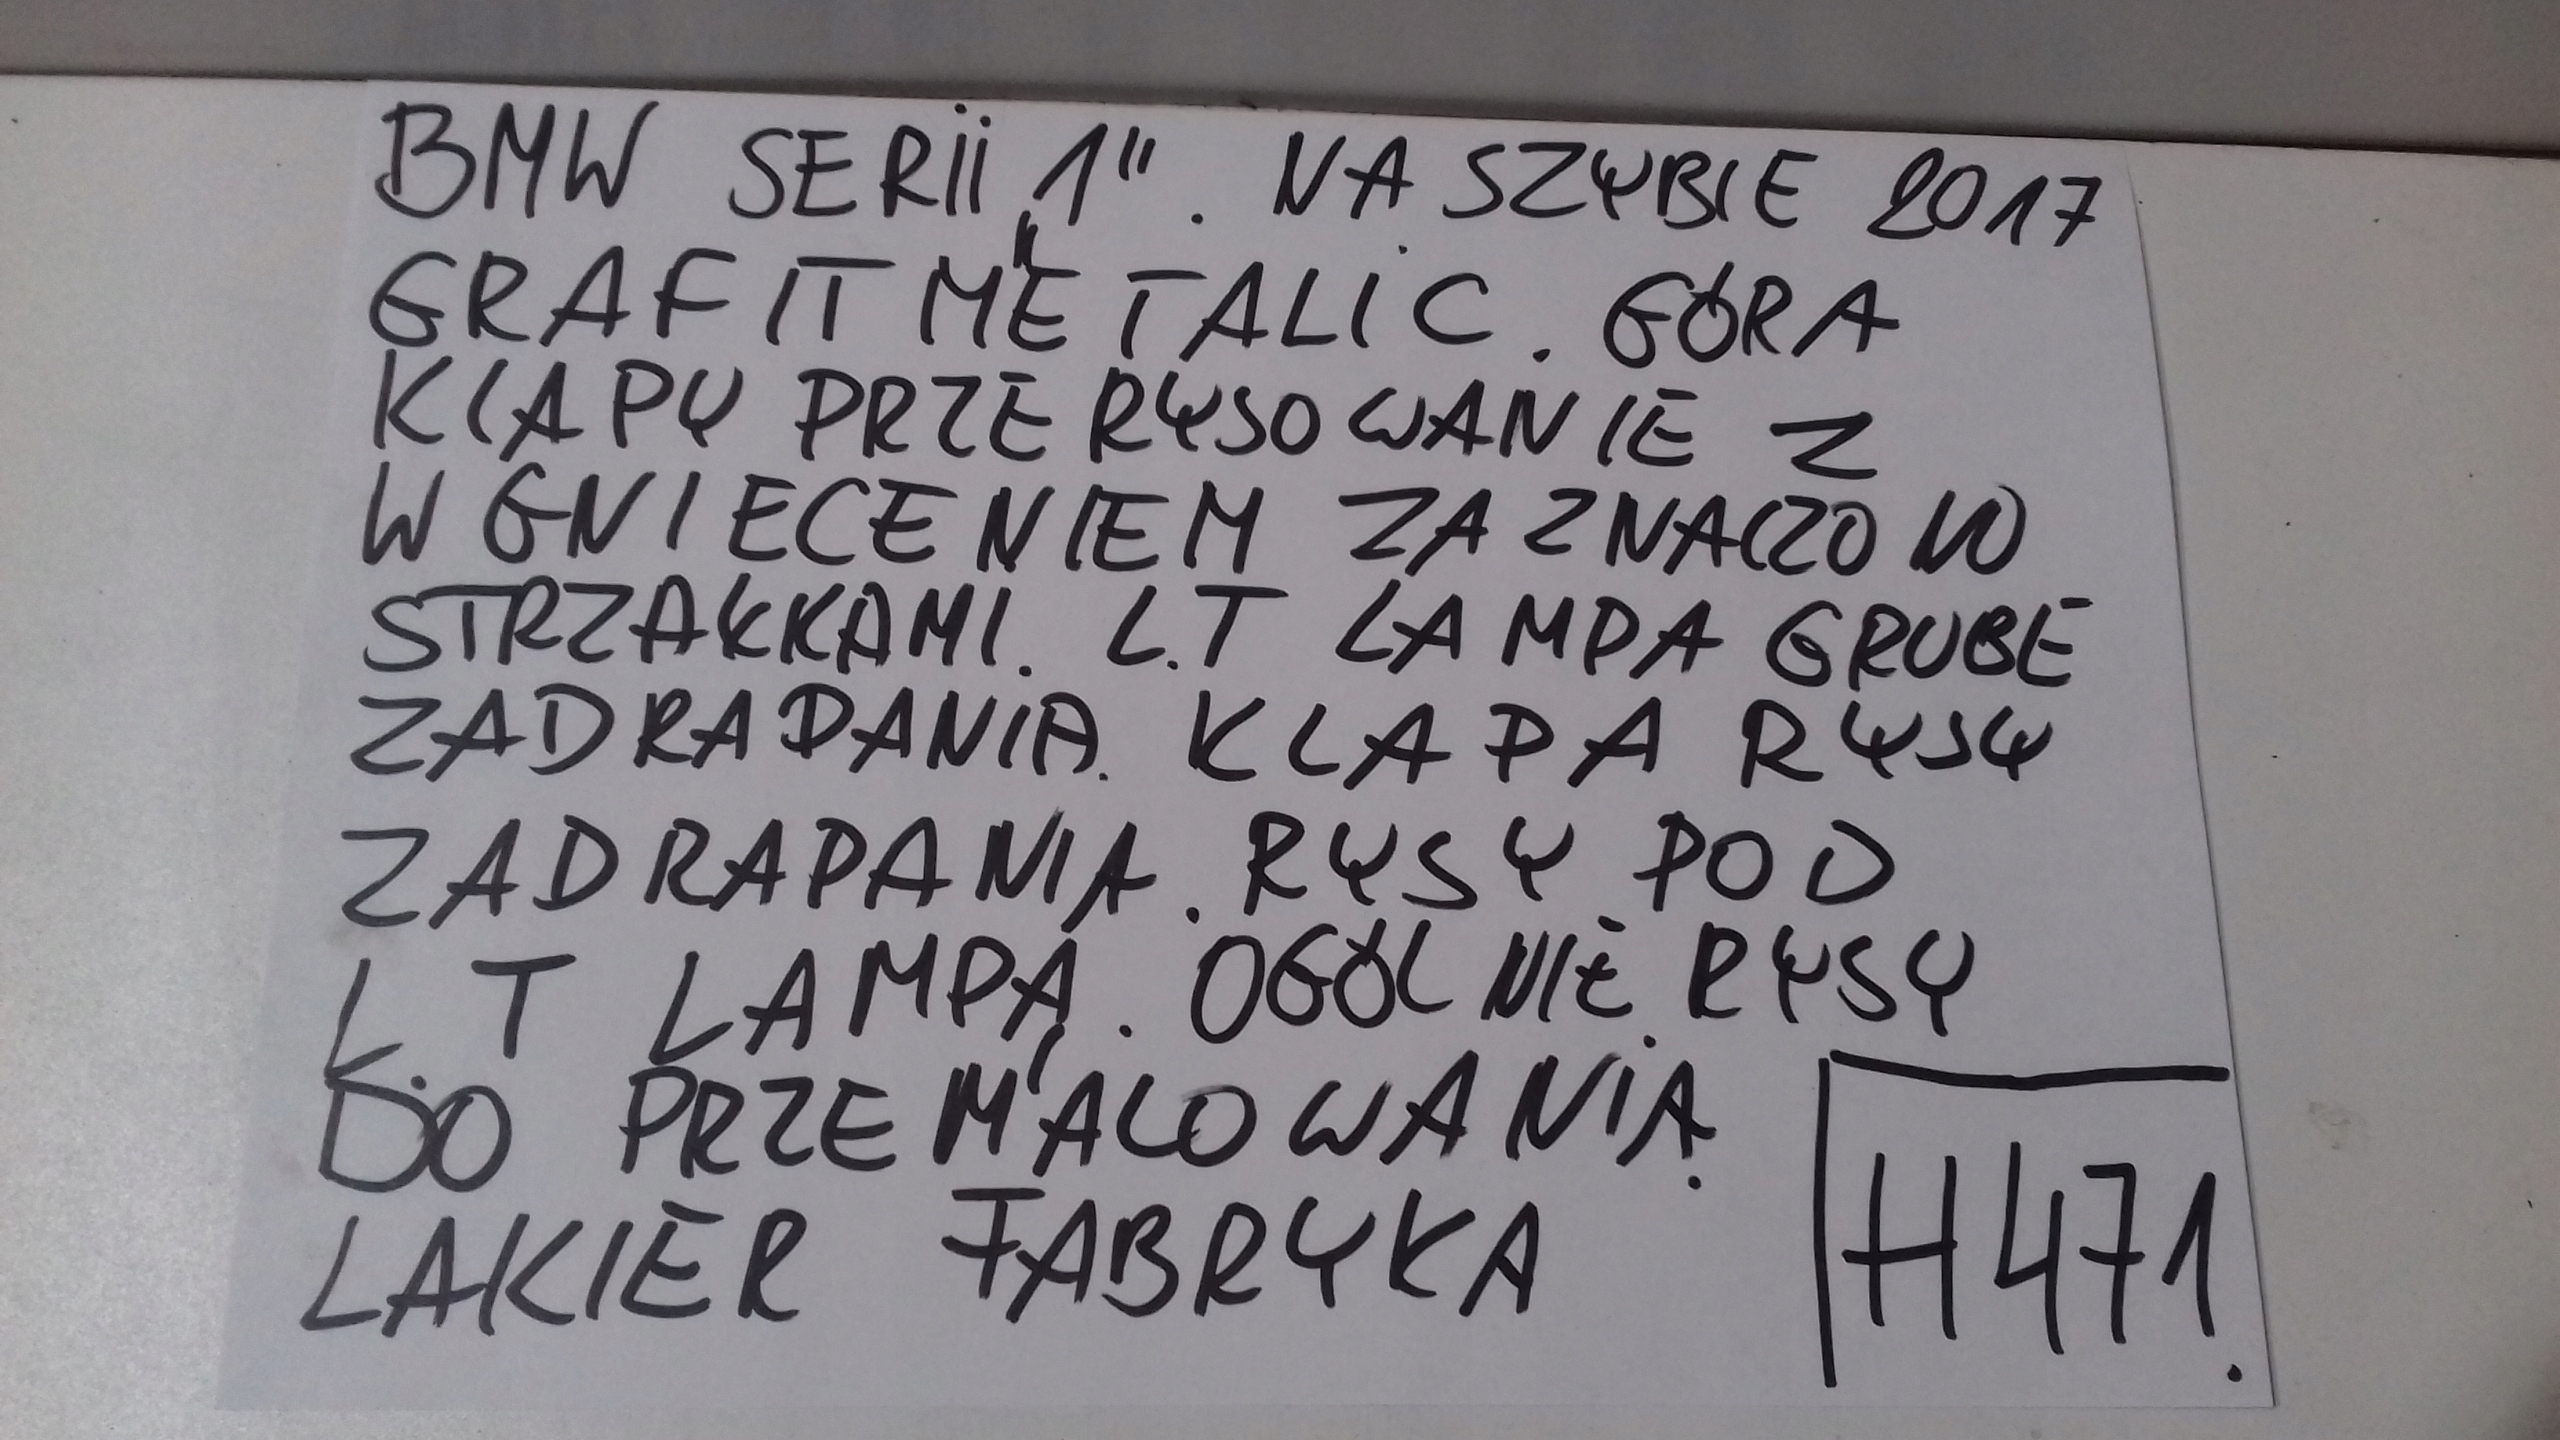 BMW SERII „1". NA SZYBIE 2017
GRAFIT METALIC. GÓRA
KLAPY PRZERYSOWANIE Z
WGNIECENIEM ZAZNACZONO
STRZAKKAMI. L.T LAMPA GRUBE
ZADRAPANIA. KLAPA RYSY
ZADRAPANIA. RYSY POD
L.T LAMPĄ. OGÓLNIE RYSY
DO PRZEMALOWANIA.
LAKIER FABRYKA
H471.